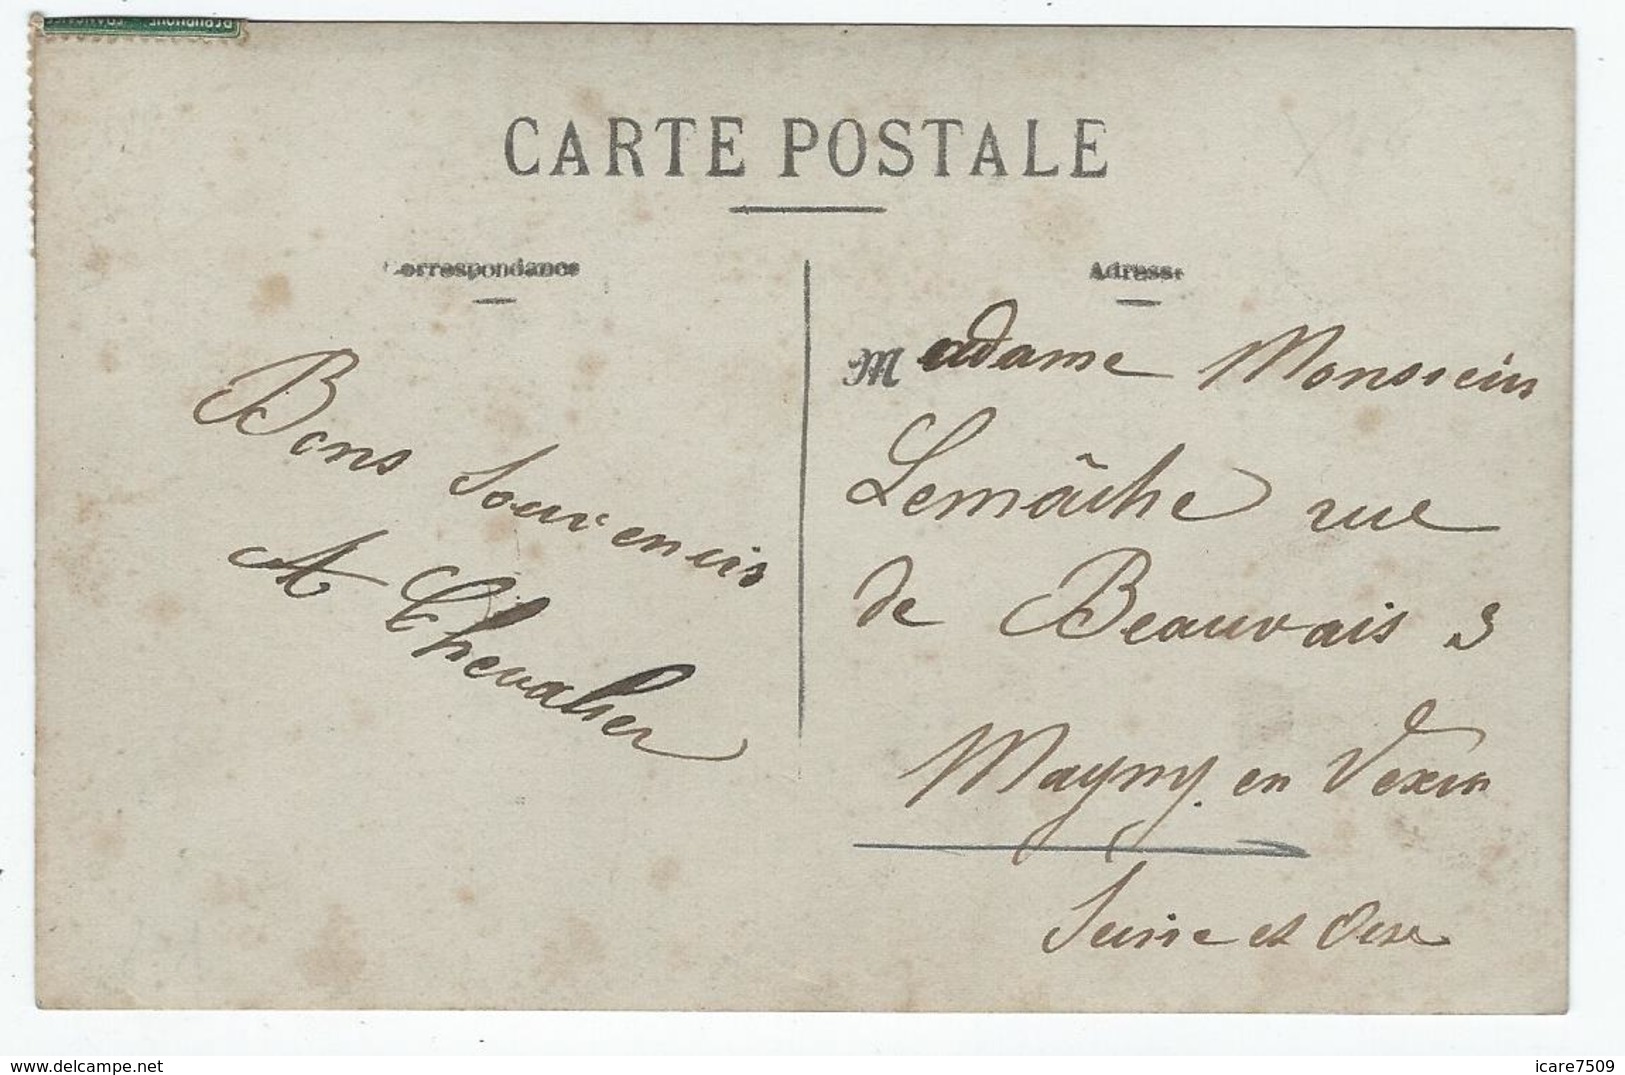 RÉPUBLIQUE FRANÇAISE
CARTE POSTALE
Correspondance
Bons Souvenirs
A Chevalier
Adresse
Madame Monsieur
Lemâche rue
de Beauvais 3
Magny en Vexin
Seine et Oise
icare7509